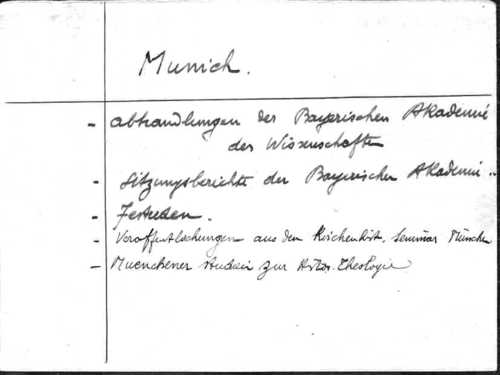 Munich.
- Abhandlungen der Bayerischen Akademie
der Wissenschaften
- Sitzungsberichte der Bayerischen Akademie ..
- Festreden.
- Veroffentlichungen aus dem Kirchenhist. Seminar München
- Muenchener Studien zur histor. Theologie